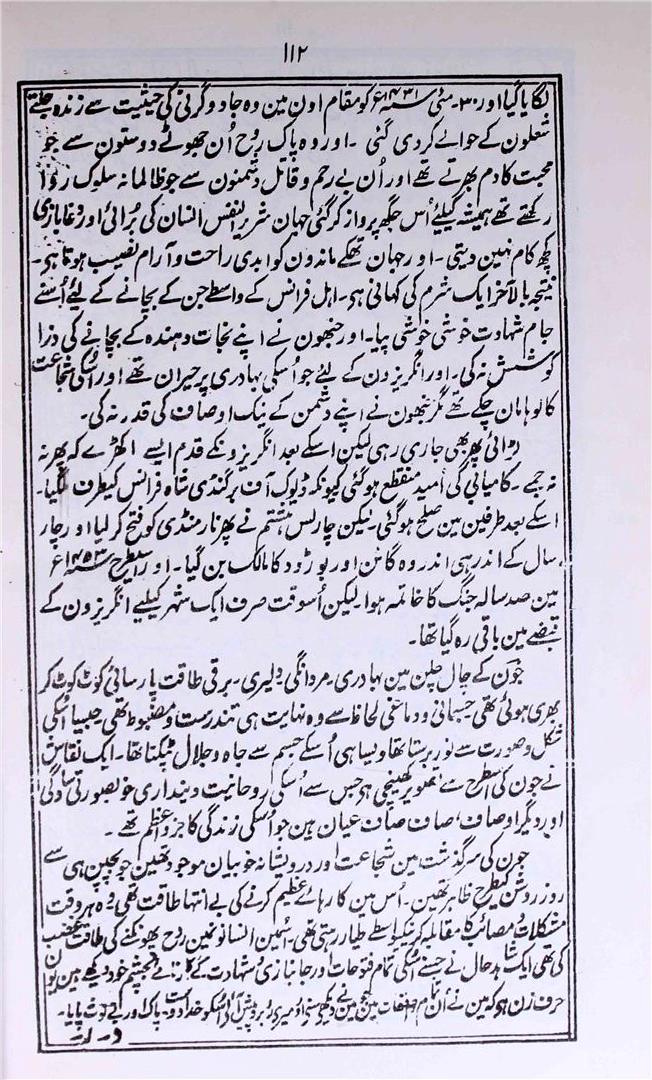 ۱۱۲
لگایا گیا اور ۳۰۔ مئی سنہ ۱۴۳۱ع کو مقام اون مین وہ جادو گرنی کی حیثیت سے زندہ جلتے
شعلون کے حوالے کر دی گئی ۔ اور وہ پاک روح اُن جھوٹے دوستون سے جو
محبت کا دم بھرتے تھے اور اُن بے رحم و قاتل دشمنون سے جو ظالمانہ سلوک روا
رکھتے تھے ہمیشہ کیلئے اُس جگہ پرواز کر گئی جہان شریر النفس انسان کی برُائی اور دغا بازی
کچھ کام نہین دیتی ۔ اور جہان تھکے ماندون کو ابدی راحت و آرام نصیب ہوتا ہی ۔
نتیجہ بالآخر ایک شرم کی کہانی ہی ۔ اہل فرانس کے واسطے جن کے بچانے کے لیٔے اُسنے
جام شہادت خوشی خوشی پیا ۔ اور جنھون نے اپنے نجات دہندہ کے بچانے کی ذرا
کوشش نہ کی ۔ اور انگریزون کے لیٔے جو اُسکی بہادری پر حیران تھے اور اسکی شجاعت
کا لوہا مان چکے تھے مگر جنھون نے اپنے دشمن کے نیک اوصاف کی قدر نہ کی ۔
لڑائی پھر بھی جاری رہی لیکن اسکے بعد انگریزونکے قدم ایسے اکھڑے کہ پھر نہ
نہ جمے ۔ کامیابی کی اُمید منقطع ہو گئی کیونکہ ڈیوک آف برگنڈی شاہ فرانس کیطرف ملگیا ۔
اسکے بعد طرفین مین صلح ہو گئی ۔ لیکن چارلس ہشتم نے پھر نارمنڈی کو فتح کر لیا اور چار
سال کے اندر ہی اندر وہ گائن اور بورڈو کا مالک بن گیا ۔ اور اسیطرح سنہ ۱۴۵۳ع
مین صد سالہ جنگ کا خاتمہ ہوا ۔ لیکن اُسوقت صرف ایک شہر کیلیے انگریزون کے
قبضے مین باقی رہ گیا تھا ۔
جون کے چال چلن مین بہادری ۔ مردانگی دلیری ۔ برقی طاقت پارسائی کوٹ کوٹ کر
بھری ہوئی تھی ۔ جسمانی و دماغی لحاظ سے وہ نہایت ہی تندرست و مضبوط تھی ۔ جیسا اُسکی
شکل و صورت سے نور برستا تھا ویسا ہی اُسکے جسم سے جاہ و جلال ٹپکتا تھا ۔ ایک نقاش
نے جون کی اسطرح سے تصویر کھینچی ہی جس سے اُسکی روحانیت دینداری خوبصورتی سادگی
اور دیگر اوصاف ، صاف صاف عیان ہین جو اُسکی زندگی کا جزو اعظم تھے ۔
جون کی سرگذشت مین شجاعت اور درویشانہ خوبیان موجود تھین جو بچپن ہی سے
روز روشن کیطرح ظاہر تھین ۔ اُس مین کارہائے عظیم کرنے کی بے انتہا طاقت تھی وہ ہر وقت
مشکلات و مصائب کا مقابلہ کرنیکے واسطے طیار رہتی تھی ۔ اُسمین انسانونمین روح پھونکنے کی طاقت غضب
کی تھی ایک شاہد حال نے جسنے اُسکی تمام فتوحات اور جانبازی و شہادت کے کارنامے بچشم خود دیکھے ہین یون
حرف زن ہو کہ مین نے اُن تمام مین جو مین نے دیکھی سنی اور میری روبرو پیش آئی اُسکو خدا دوست ۔ پاک اور بے لوث پایا ۔